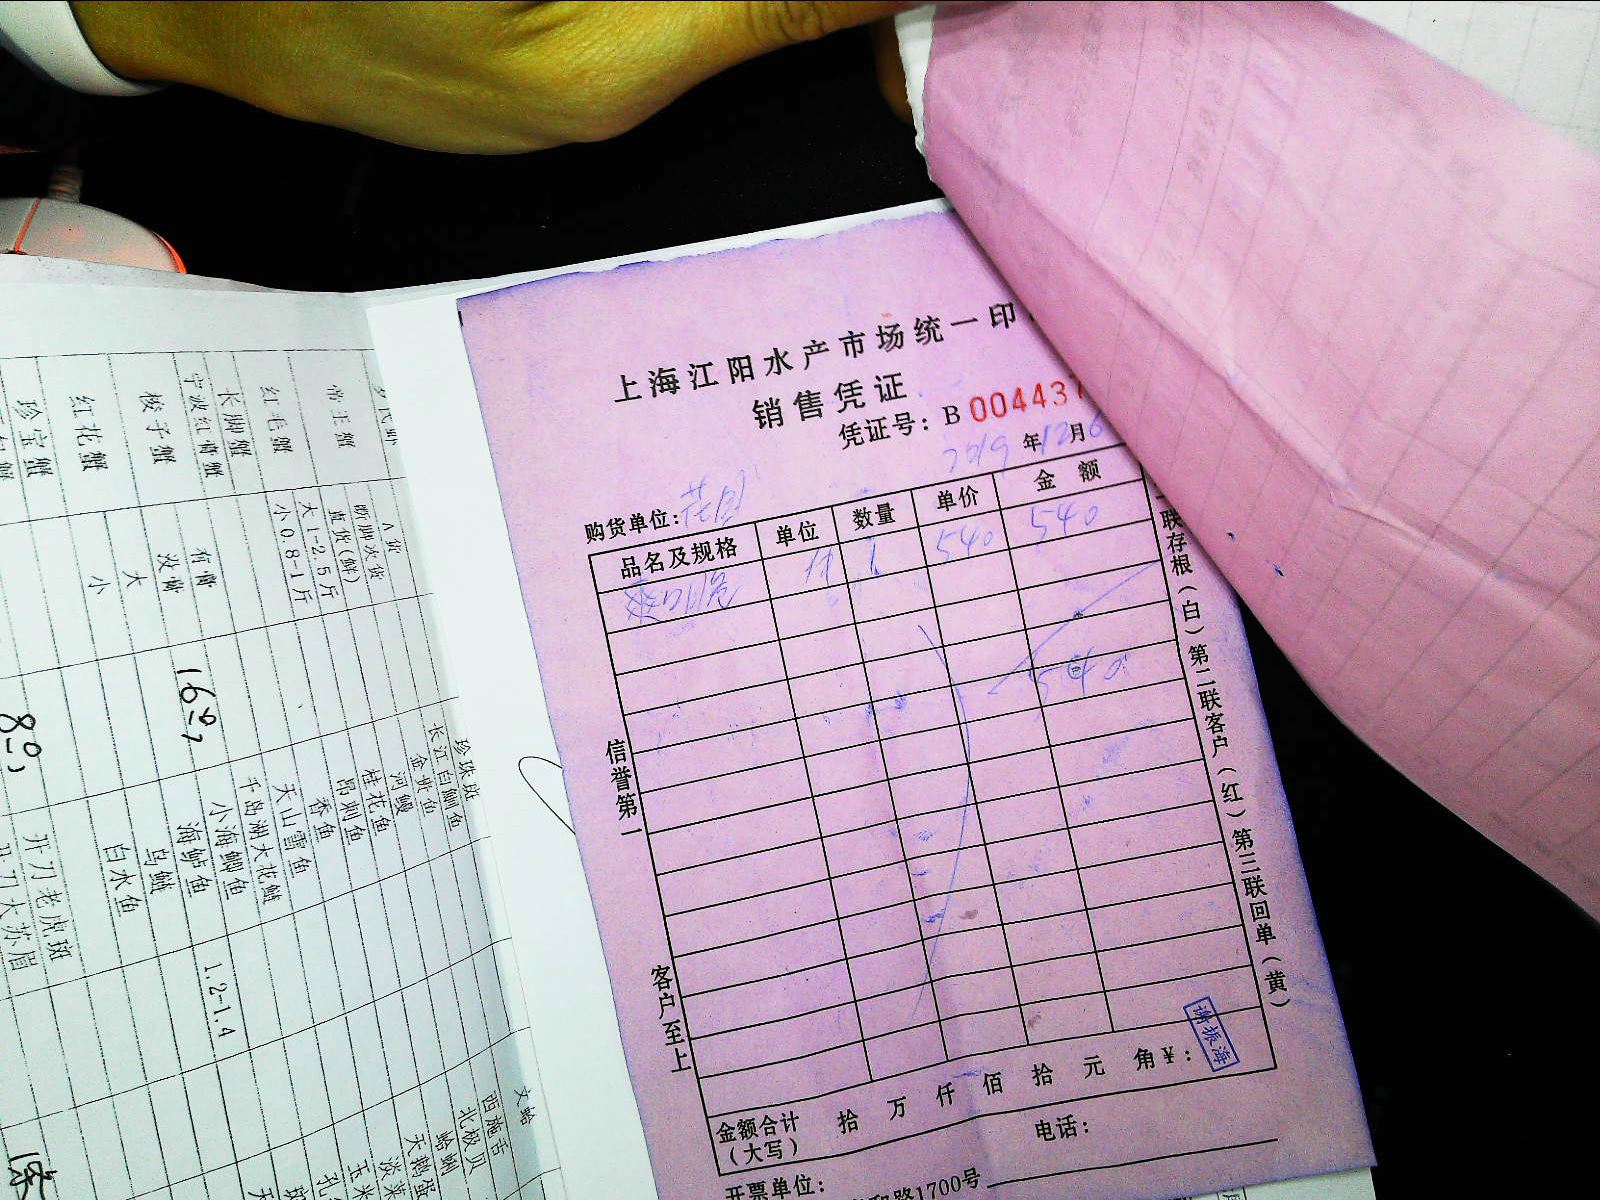 上海江阳水产市场统一印
销售凭证
凭证号：B 004437
2019 年 12 月 6
购货单位：花园
品名及规格 单位 数量 单价 金额
爽口脆 件 1 540 540
540
信誉第一
客户至上
联存根（白）第二联客户（红）第三联回单（黄）
谢振海
金额合计（大写） 拾 万 仟 佰 拾 元 角 ¥：
电话：
开票单位：
路1700号
帝王蟹
红毛蟹
长脚蟹
宁波红膏蟹
梭子蟹
红花蟹
珍宝蟹
A货
断脚次货
直货(鲜)
大1-2.5斤
小0.8-1斤
有膏
没膏
大
小
160
80
珍珠斑
长江白鮰鱼
金贵鱼
河鳗
桂花鱼
昂刺鱼
香鱼
天山雪鱼
千岛湖大花鲢
小海鲫鱼
海鲈鱼
乌鲢
白水鱼
开刀老虎斑
开刀大苏眉
1.2-1.4
文蛤
西施舌
北极贝
蛤蜊
天鹅蛋
淡菜